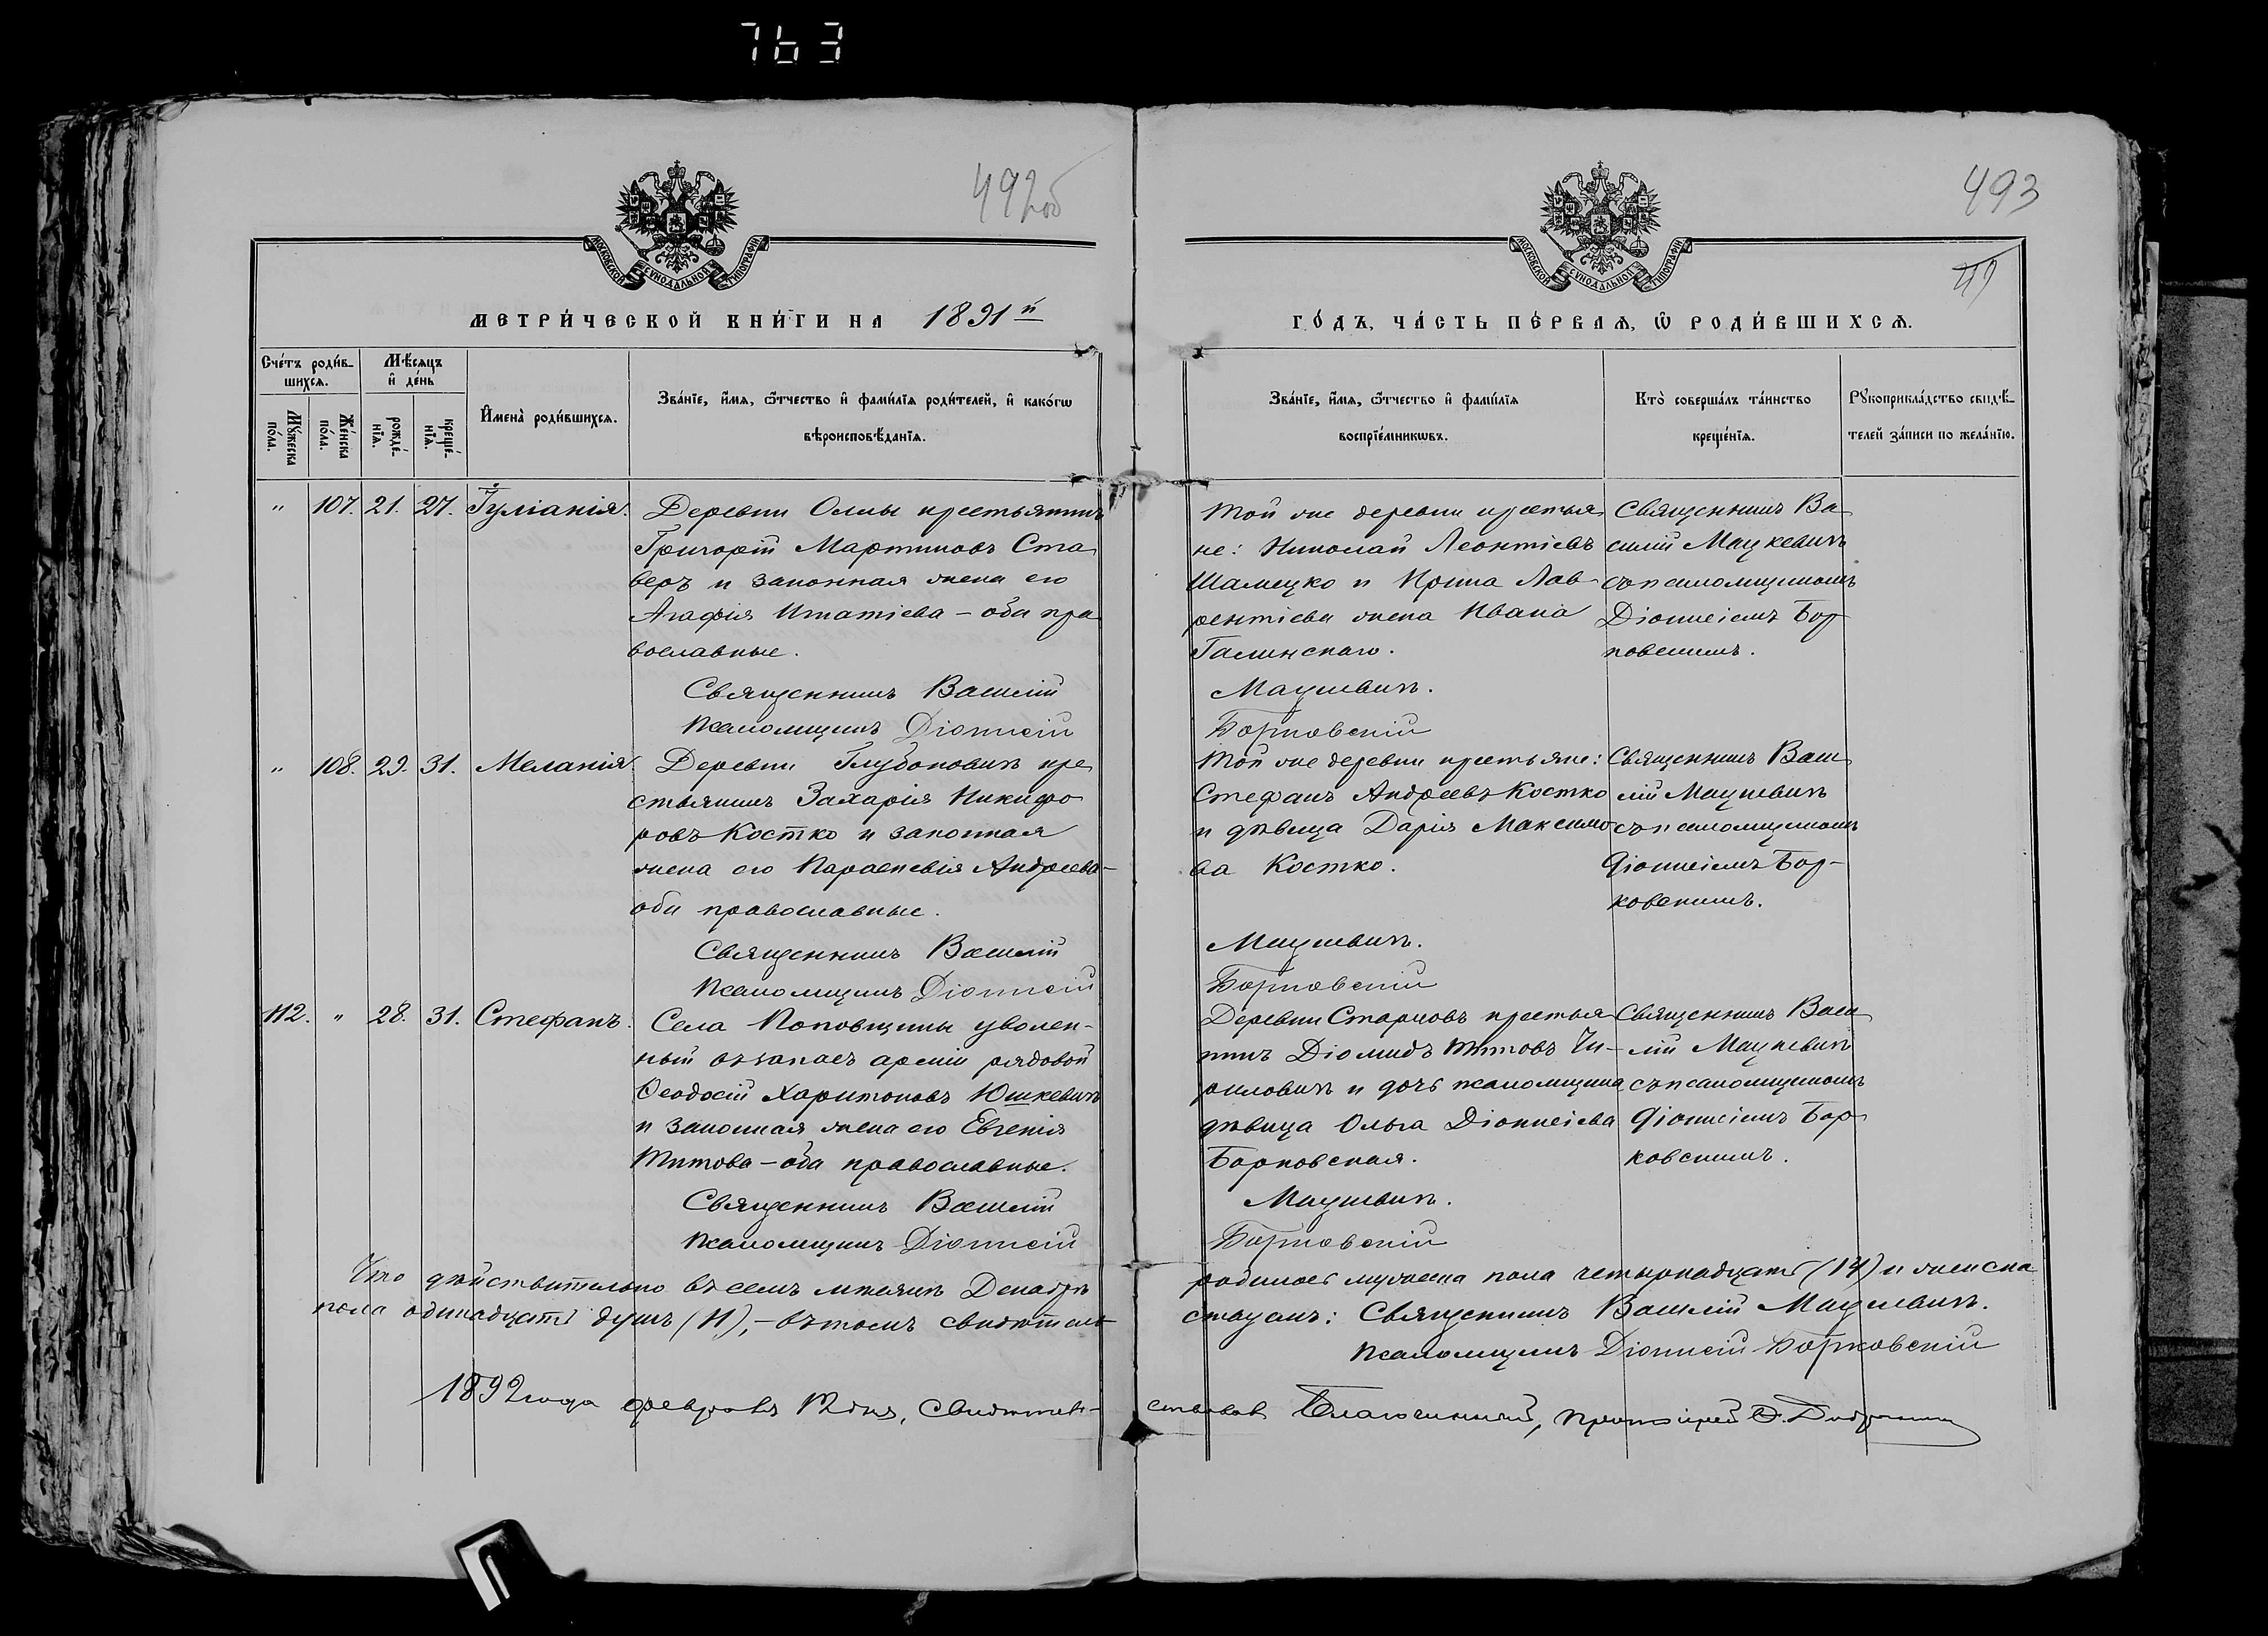 763
492об
493
МОСКОВСКОЙ СѴНОДАЛЬНОЙ ТИПОГРАФІИ
МОСКОВСКОЙ СѴНОДАЛЬНОЙ ТИПОГРАФІИ
МЕТРИ́ЧЕСКОЙ КНИ́ГИ НА 1891й
ГО́ДЪ, ЧА́СТЬ ПЕ́РВАѦ, Ѡ҆ РОДИ́ВШИХСѦ.
Сче́тъ роди́в-
шихсѧ.
Мѣ́сѧцъ
и҆ де́нь
Мꙋ́жеска
по́ла.
Же́нска
по́ла.
рожде́-
нїѧ.
креще́-
нїѧ.
И҆мена̀ роди́вшихсѧ.
Зва́нїе, и҆́мѧ, ѻ҆́тчество и҆ фами́лїѧ роди́телей, и҆ како́гѡ
вѣроисповѣ́данїѧ.
Зва́нїе, и҆́мѧ, ѻ҆́тчество и҆ фами́лїѧ
воспрїе́мникѡвъ.
Кто̀ соверша́лъ та́инство
креще́нїѧ.
Рꙋкоприкла́дство свидѣ́-
телей за́писи по жела́нїю.
" 107. 21. 27. Іуліанія.
Деревни Олны крестьянинъ
Григорій Мартиновъ Ста
веръ и законная жена его
Агафія Игнатіева - оба пра
вославные.
Священникъ Василій
Псаломщикъ Діонисій
Той же деревни крестья
не: Николай Леонтіевъ
Шамецко и Ирина Лав
рентіева жена Ивана
Галинскаго.
Мацкевичъ.
Борковскій
Священникъ Ва
силій Мацкевичъ
съ псаломщикомъ
Діонисіемъ Бор
ковскимъ.
" 108. 29. 31. Меланія.
Деревни Глубоковичъ кре
стьянинъ Захарія Никифо
ровъ Костко и законная
жена его Параскевія Андреева-
оба православные.
Священникъ Василій
Псаломщикъ Діонисій
Той же деревни крестьяне:
Стефанъ Андреевъ Костко
и дѣвица Дарія Максимо
ва Костко.
Мацкевичъ.
Борковскій
Священникъ Васи
лій Мацкевичъ
съ псаломщикомъ
Діонисіемъ Бор-
ковскимъ.
112. " 28. 31. Стефанъ.
Села Поповщины уволен-
ный въ запасъ арміи рядовой
Ѳеодосій Харитоновъ Юшкевичъ
и законная жена его Евгенія
Титова - оба православные.
Священникъ Василій
Псаломщикъ Діонисій
Деревни Старковъ крестья
нинъ Діомидъ Титовъ Чи-
риловичъ и дочь псаломщика
дѣвица Ольга Діонисіева
Борковская.
Мацкевичъ.
Борковскій
Священникъ Васи
лій Мацкевичъ
съ псаломщикомъ
Діонисіемъ Бор
ковскимъ.
Что дѣйствительно въ семъ мѣсяцѣ Декабрѣ родилось мужеска пола четырнадцать (14) и женска
пола одинадцать душъ (11), - въ томъ свидѣтель ствуемъ: Священникъ Василій Мацкевичъ.
Псаломщикъ Діонисій Борковскій
1892 года февраля 12 дня, Свидѣтель- ствовалъ Благочинный, Протоіерей